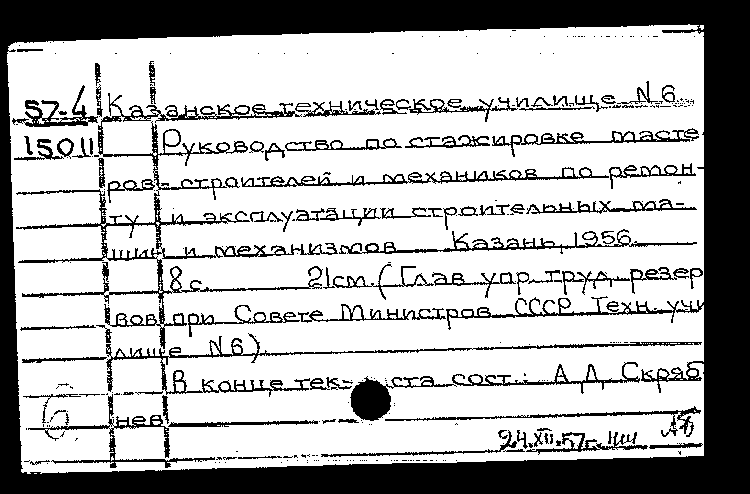 57-4 Казанское техническое училище N 6
15011 Руководство по стажировке масте
ров-строителей и механиков по ремон-
ту и эксплуатации строительных ма-
шин и механизмов Казань, 1956.
8 с. 21см. (Глав упр. труд. резер
вов при Совете Министров СССР Техн. учи
лище N 6).
В конце тек- ста сост.: А Д Скряб
нев
6
24.XII.57г.